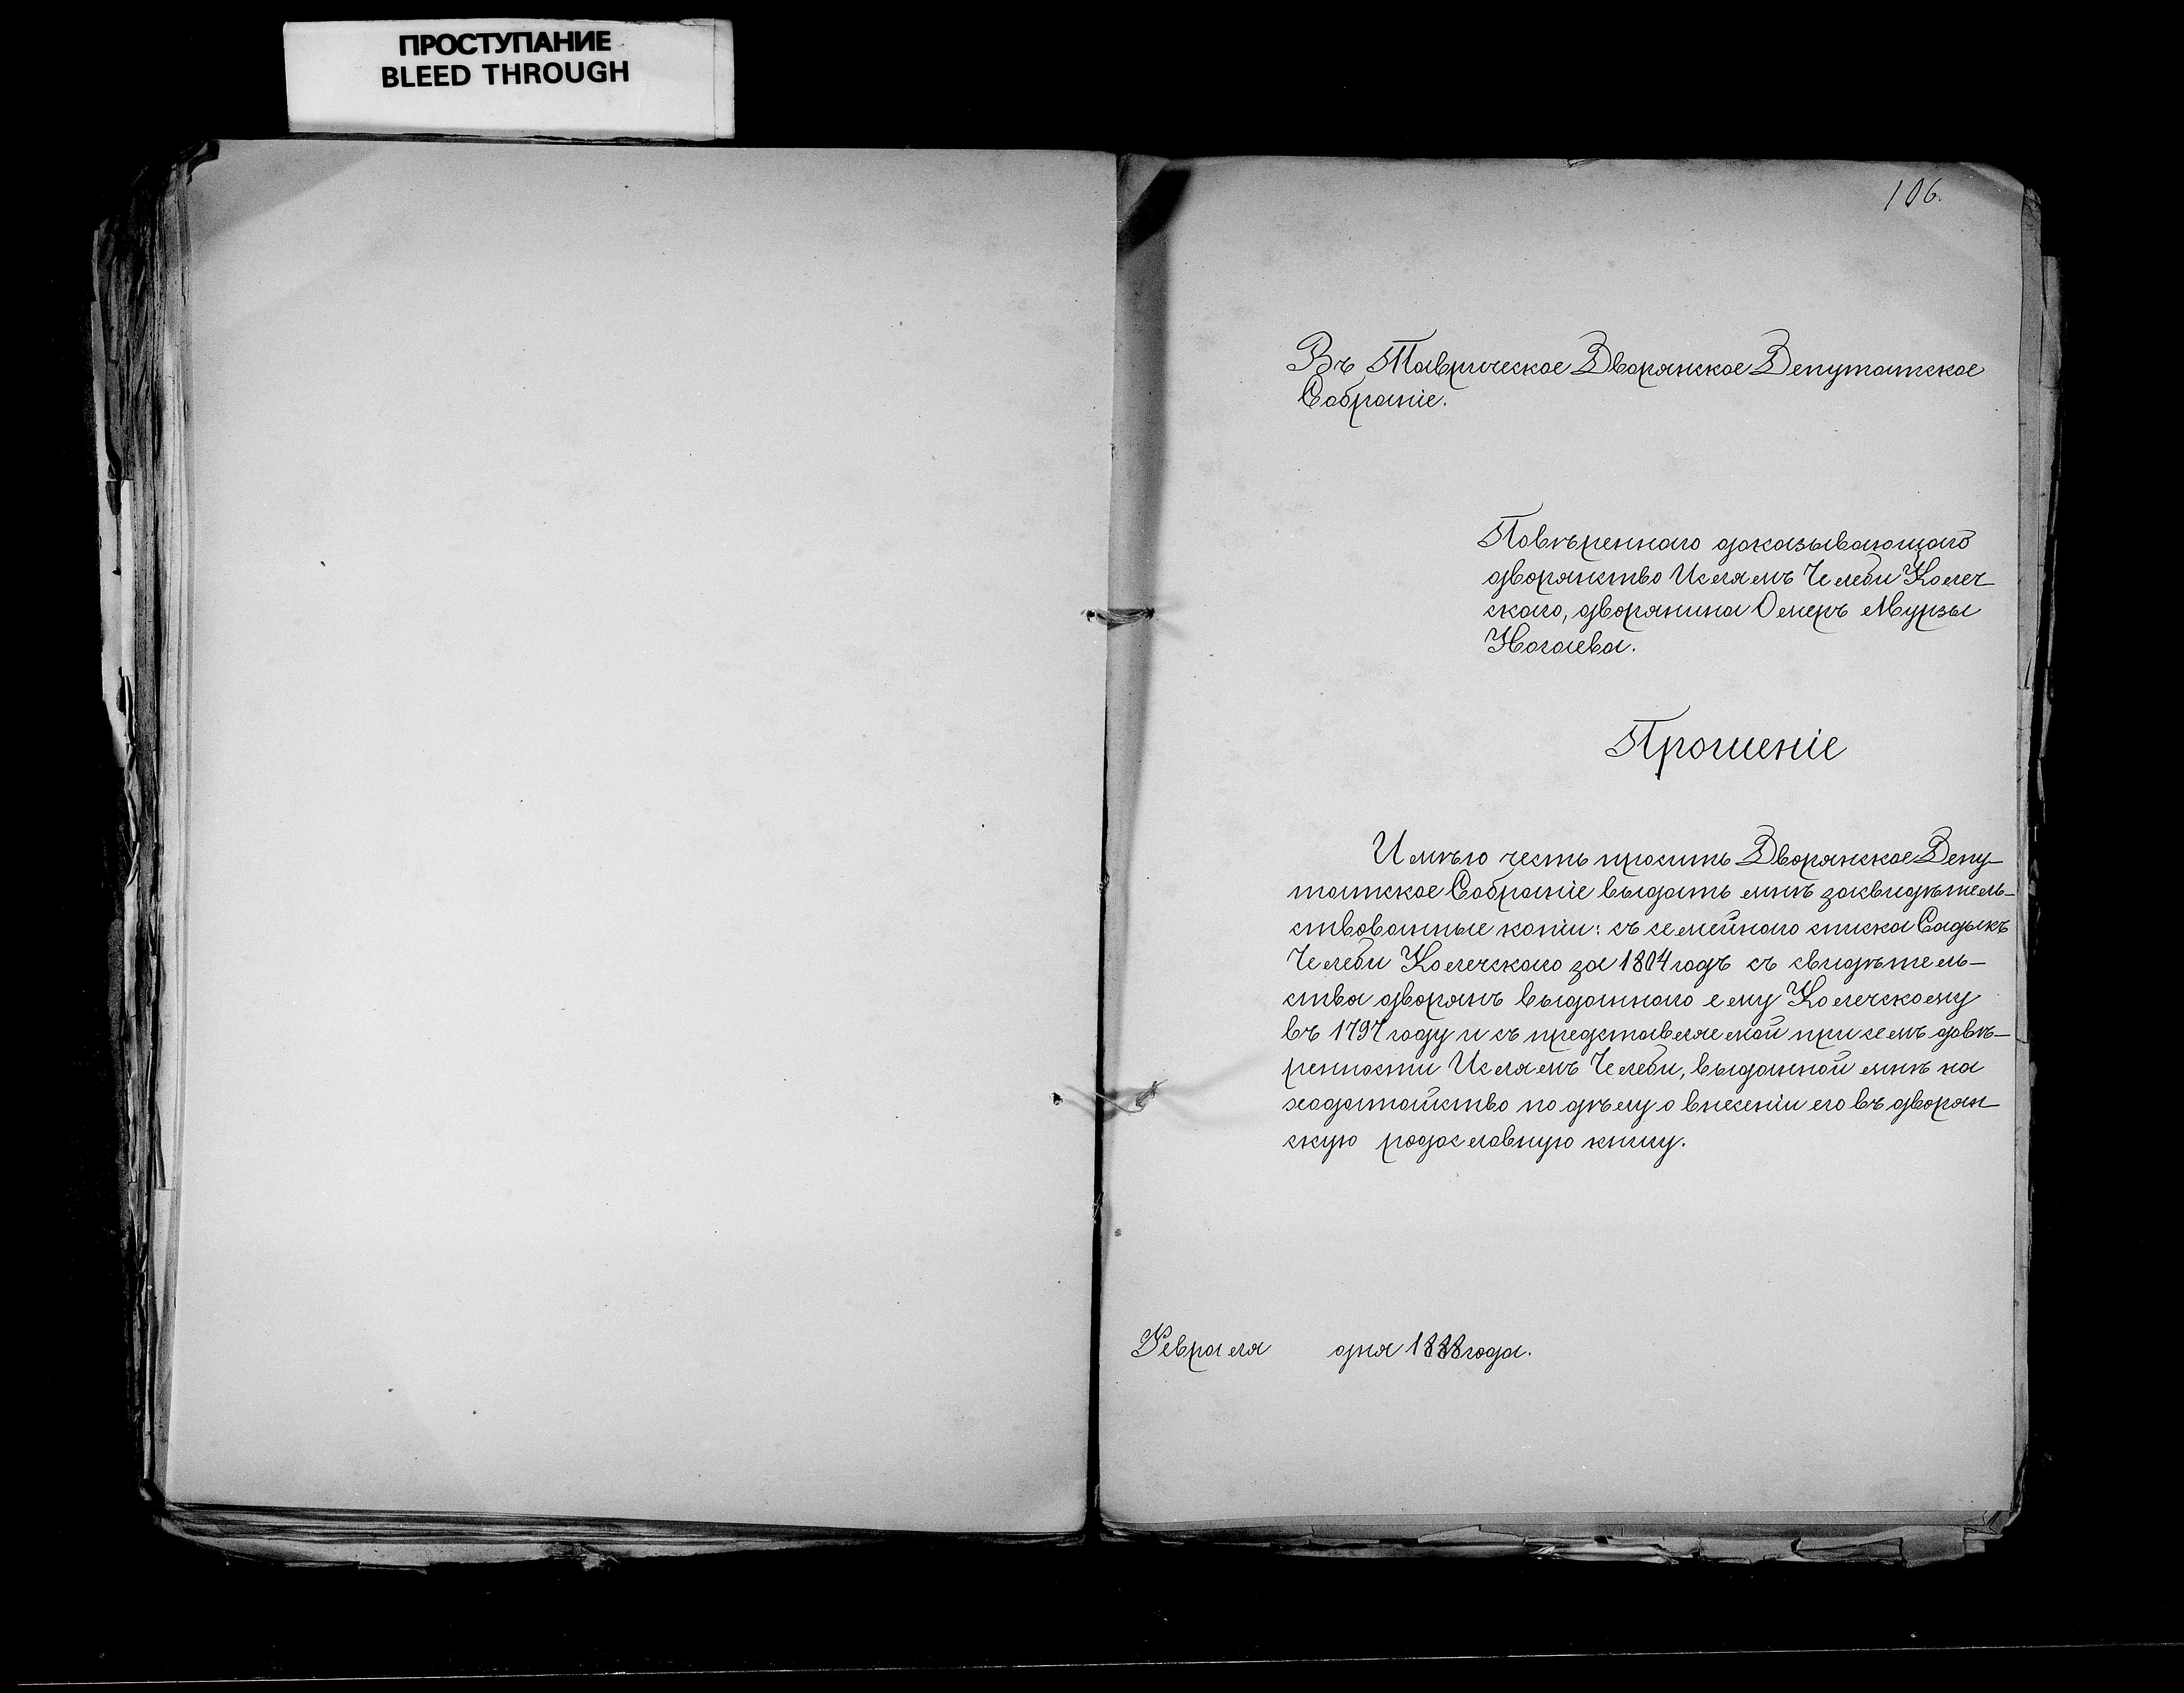 ПРОСТУПАНИЕ
BLEED THROUGH
106.
Въ Таврическое Дворянское Депутатское
Собраніе.
Повѣреннаго доказывающаго
дворянство Ислямъ Челеби Колеч-
скаго, дворянина Омеръ Мурзы
Ногаева.
Прошеніе
Имѣю честь просить Дворянское Депу-
татское Собраніе выдать мнѣ засвидѣтель-
ствованные копіи: съ семейнаго списка Садыкъ
Челеби Колечскаго за 1804 годъ съ свидѣтель-
ства дворянъ выданнаго ему Колечскому
въ 1797 году и съ представляемой при семъ довѣ-
ренности Ислямъ Челеби, выданной мнѣ на
ходатайство по дѣлу о внесеніи его въ дворян-
скую родословную книгу.
Февраля дня 1888 года.